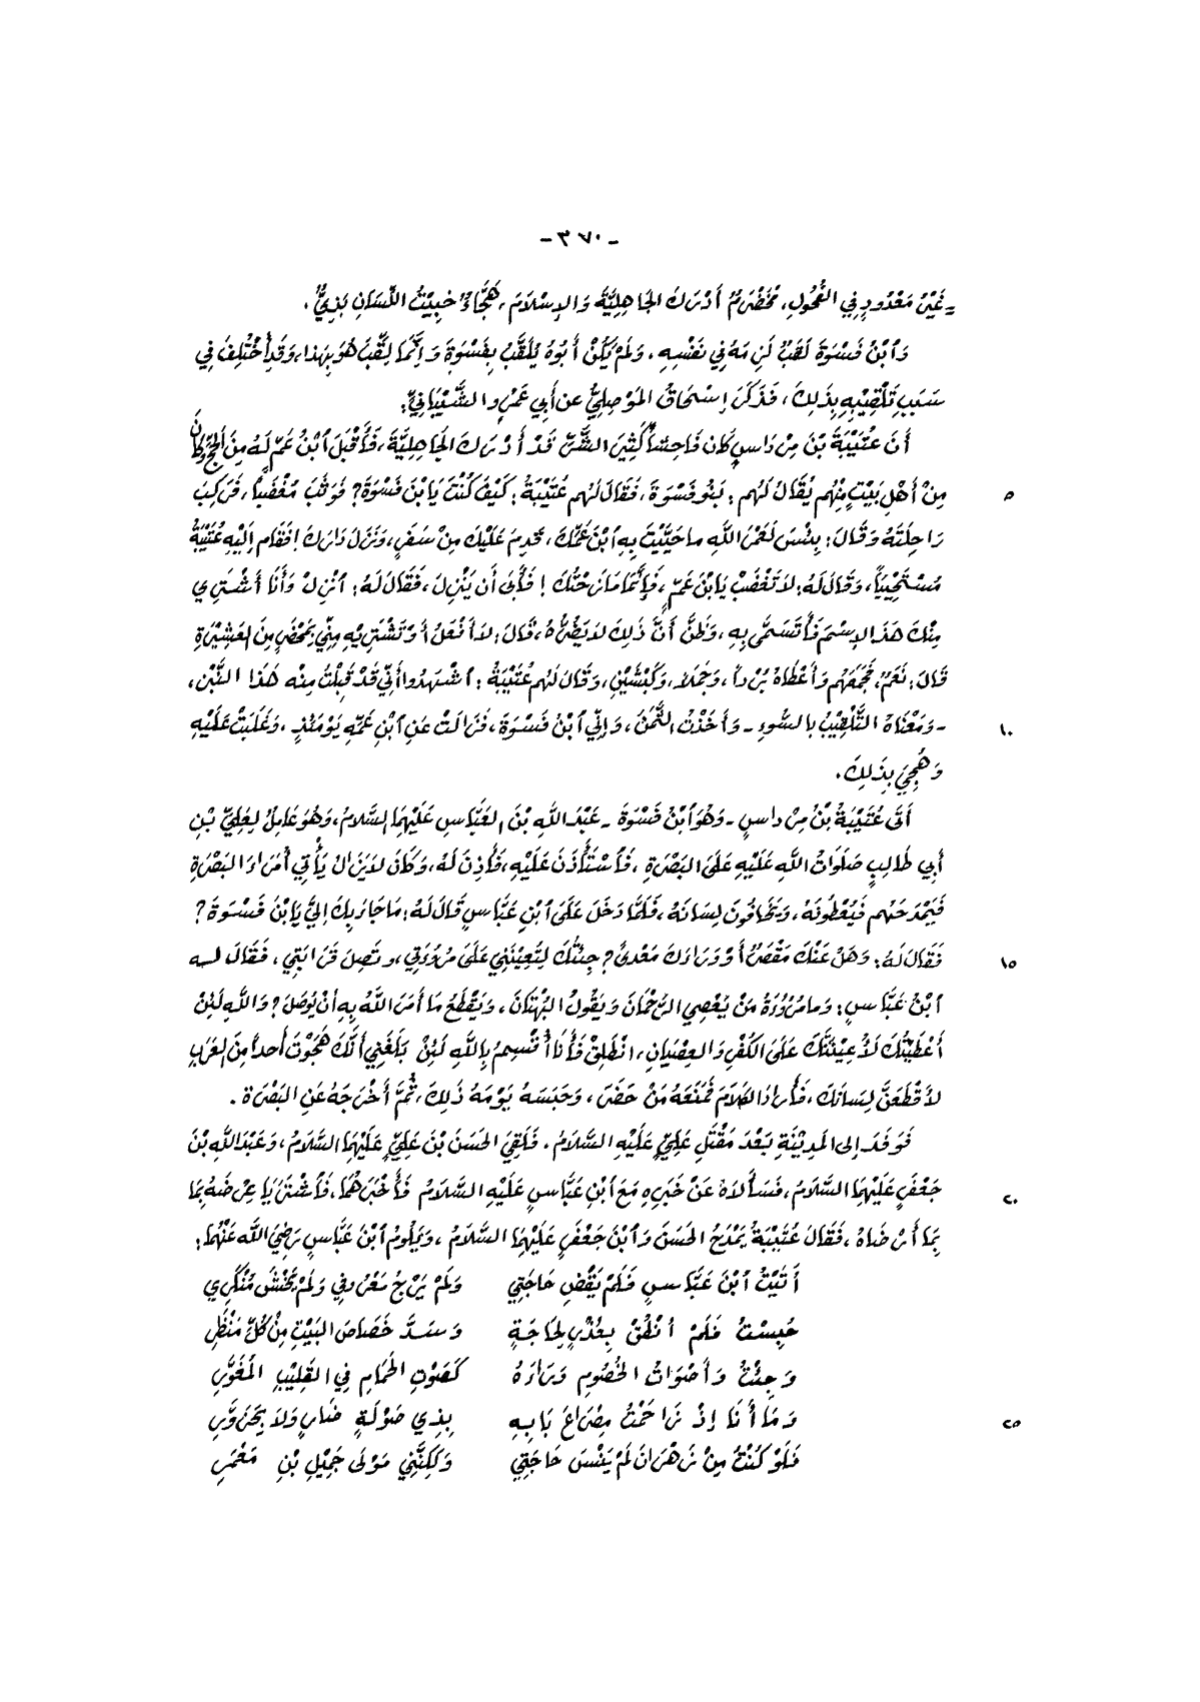 - ٣٧٠ -
- غَيْرُ مَعْدُودٍ فِي الفُحُولِ، مُخَضْرَمٌ أَدْرَكَ الجَاهِلِيَّةَ وَالإِسْلاَمَ، هَجَّاءٌ خَبِيْثُ اللِّسَانِ بَذِيٌّ .
وَٱبْنُ فَسْوَةَ لَقَبٌ لَزِمَهُ فِي نَفْسِهِ، وَلَمْ يَكُنْ أَبُوهُ يُلَقَّبُ بِفَسْوَةَ وَإِنَّمَا لُقِّبَ هُوَ بِهَذا، وَقَدِ ٱخْتُلِفَ فِي
سَبَبِ تَلْقِيْبِهِ بِذَلِكَ، فَذَكَرَ إسْحَاقُ المَوْصِلِيُّ عن أَبِي عَمْرٍو الشَّيْبَانِيِّ:
أَنَّ عُتَيْبَةَ بْنَ مِرْدَاسٍ كَانَ فَاحِشاً كَثِيْرَ الشَّرِّ قَدْ أَدْرَكَ الجَاهِلِيَّةَ، فَأَقْبَلَ ٱبْنُ عَمٍّ لَهُ مِنَ الحَجِّ وَكَانَ
مِنْ أَهْلِ بَيْتٍ مِنْهُم يُقَالُ لَهُم: بَنُو فَسْوَةَ، فَقَالَ لَهُم عُتَيْبَةُ: كَيْفَ كُنْتَ يَا ٱبْنَ فَسْوَةَ؟ فَوَثَبَ مُغْضَباً، فَرَكِبَ ٥
رَاحِلَتَهُ وَقَالَ: بِئْسَ لَعَمْرُ اللَّهِ ما حَيَّيْتَ بِهِ ٱبْنَ عَمِّكَ، قَدِمَ عَلَيْكَ مِنْ سَفَرٍ، وَنَزَلَ دَارَكَ! فَقَام إلَيْهِ عُتَيْبَةُ
مُسْتَحْيِياً، وَقَالَ لَهُ: لاَ تَغْضَبْ يَا ٱبْنَ عَمّ، فَإِنَّمَا مَازَحْتُكَ! فَأَبَى أَن يَنْزِلَ، فَقَالَ لَهُ: ٱنْزِلْ وَأَنَا أَشْتَرِي
مِنْكَ هَذَا الإِسْمَ فَأَتَسَمَّى بِهِ، وَظَنَّ أَنَّ ذَلِكَ لاَ يَضُرُّهُ، قَالَ: لاَ أَفْعَلُ أَوْ تَشْتَرِيَهِ مِنِّي بِمَحْضَرٍ مِنَ العَشِيْرَةِ
قَالَ: نَعَمْ، فَجَمَعَهُم وَأَعْطَاهُ بُرْداً، وَجَمَلاً، وَكَبْشَيْنِ، وَقَالَ لَهُم عُتَيْبَةُ: ٱشْهَدُوا أَنِّي قَدْ قَبِلْتُ مِنْه هَذَا النَّبْزَ،
- وَمَعْنَاهُ التَّلْقِيْبُ بالسُّوءِ - وَأَخَذْتُ الثَّمَنَ، وَإِنِّي ٱبْنُ فَسْوَةَ، فَزَالَتْ عَنِ ٱبْنِ عَمِّهِ يَوْمَئِذٍ، وَغَلَبَتْ عَلَيْهِ ١٠
وَهُجِيَ بِذَلِكَ.
أَتَى عُتَيْبَةُ بْنُ مِرْداسٍ - وَهُوَ ٱبْنُ فَسْوَةَ - عَبْدَ اللَّهِ بْنَ العَبَّاسِ عَلَيْهِمَا السَّلاَمُ، وَهُوَ عَامِلٌ لِعَلِيِّ بْنِ
أَبِي طَالِبٍ صَلَوَاتُ اللَّهِ عَلَيْهِ عَلَى البَصْرَةِ، فَٱسْتَأْذَنَ عَلَيْهِ، فَأَذِنَ لَهُ، وَكَانَ لاَ يَزَالُ يَأْتِي أُمَرَاءَ البَصْرَةِ
فَيَمْدَحَهُم فَيُعْطُونَهُ، وَيَخَافُونَ لِسَانَهُ، فَلَمَّا دَخَلَ عَلَى ٱبْنِ عَبَّاسٍ قَالَ لَهُ: مَا جَاءَ بِكَ إِلَيَّ يَا ٱبْنَ فَسْوَةَ؟
فَقَالَ لَهُ: وَهَلْ عَنْكَ مَقْصَرٌ أَوْ وَرَاءَكَ مَعْدىً؟ جِئْتُكَ لِتُعِيْنَنِي عَلَى مُرُوءَتِي، وَتَصِلَ قَرَابَتِي، فَقَالَ لَه ١٥
ٱبْنُ عَبَّاسٍ: وَمَا مُرُوءَةُ مَنْ يَعْصِي الرَّحْمَانَ وَيَقُولُ البُهْتَانَ، وَيَقْطَعُ مَا أَمَرَ اللَّهُ بِهِ أَنْ يُوصَلَ؟ وَاللَّهِ لَئِنْ
أَعْطَيْتُكَ لَأُعِيْنَنَّكَ عَلَى الكُفْرِ وَالعِصْيَانِ، انْطَلِقْ فَأَنَا أُقْسِمُ بِاللَّهِ لَئِنْ بَلَغَنِي أَنَّكَ هَجَوْتَ أَحداً مِنَ العَرَبِ
لأَقْطَعَنَّ لِسَانَكَ، فَأَرَادَ الكَلاَمَ فَمَنَعَهُ مَنْ حَضَرَ، وَحَبَسَهُ يَوْمَهُ ذَلِكَ، ثُمَّ أَخْرَجَهُ عَنِ البَصْرَة .
فَوَفَدَ إلى المَدِيْنَةِ بَعْدَ مَقْتَلِ عَلِيٍّ عَلَيْهِ السَّلاَمُ، فَلَقِيَ الحَسَنَ بْنَ عَلِيٍّ عَلَيْهِمَا السَّلاَمُ، وَعَبْدَ اللَّهِ بْنَ
جَعْفَرٍ عَلَيْهِمَا السَّلاَمُ، فَسَأَلاَهُ عَنْ خَبَرِهِ مَعَ ٱبْنِ عَبَّاسٍ عَلَيْهِ السَّلاَمُ فَأَخْبَرَهُمَا، فَٱشْتَرَيَا عِرْضَهُ بِمَا ٢٠
بِمَا أَرْضَاهُ، فَقَالَ عُتَيْبَةُ يَمْدَحُ الحَسَنَ وَٱبْنَ جَعْفَرٍ عَلَيْهِمَا السَّلاَمُ، وَيَلُومُ ٱبْنَ عَبَّاسٍ رَضِيَ اللَّه عَنْهُمَا:
أَتَيْتُ ٱبْنَ عَبَّاسٍ فَلَمْ يَقْضِ حَاجَتِي وَلَمْ يَرْجُ مَعْرُوفِي وَلَمْ يَخْشَ مُنْكَرِي
حُبِسْتُ فَلَمْ أَنْطُقْ بِعُذْرٍ لِحَاجَةٍ وَسَدَّ خَصَاصَ البَيْتِ مِنْ كُلِّ مَنْظَرِ
وَجِئْتُ وَأَصْوَاتُ الخُصُومِ وَرَاءَهُ كَصَوْتِ الحَمَامِ فِي القَلِيْبِ المُغَوَّرِ
وَمَا أَنَا إِذْ زَاحَمْتُ مِصْرَاعَ بَابِهِ بِذِي صَوْلَةٍ ضَارٍ وَلاَ بِحَزَوَّرِ ٢٥
فَلَوْ كُنْتُ مِنْ زَهْرَانَ لَمْ يَنْسَ حَاجَتِي وَلَكِنَّنِي مَوْلَى جَمِيْلِ بْنِ مَعْمَرِ